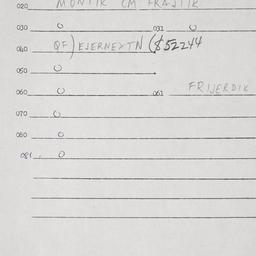 020 MONTIK CM FRAJTIK
030 0 031 0
040 QF) EJERNEXTN ($52244
050 0
060 0 061 FRIJERDIK
070 0
080 0
081 0